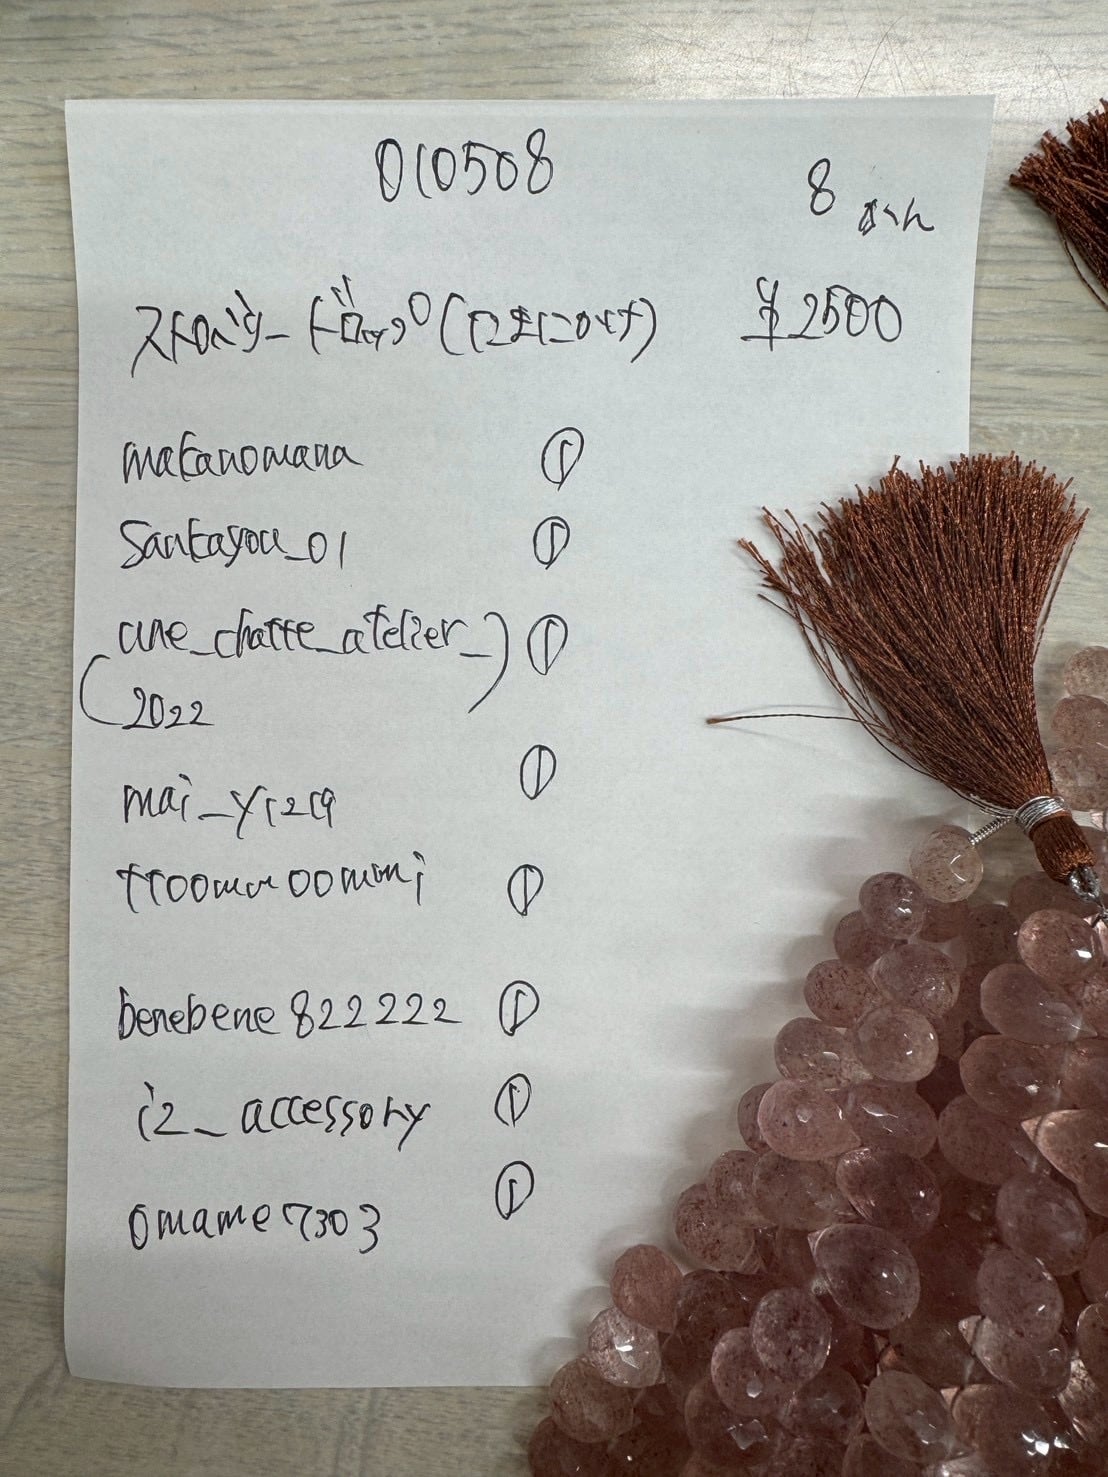 010508
8 れん
ストロベリードロップ(12まにかけ) ¥2500
makanomana ①
Sankayou_01 ①
(une_chatte_atelier_) ①
2022
mai_y1219 ①
ttoomoroommi ①
benebene822222 ①
i2_accessory ①
omame7303 ①